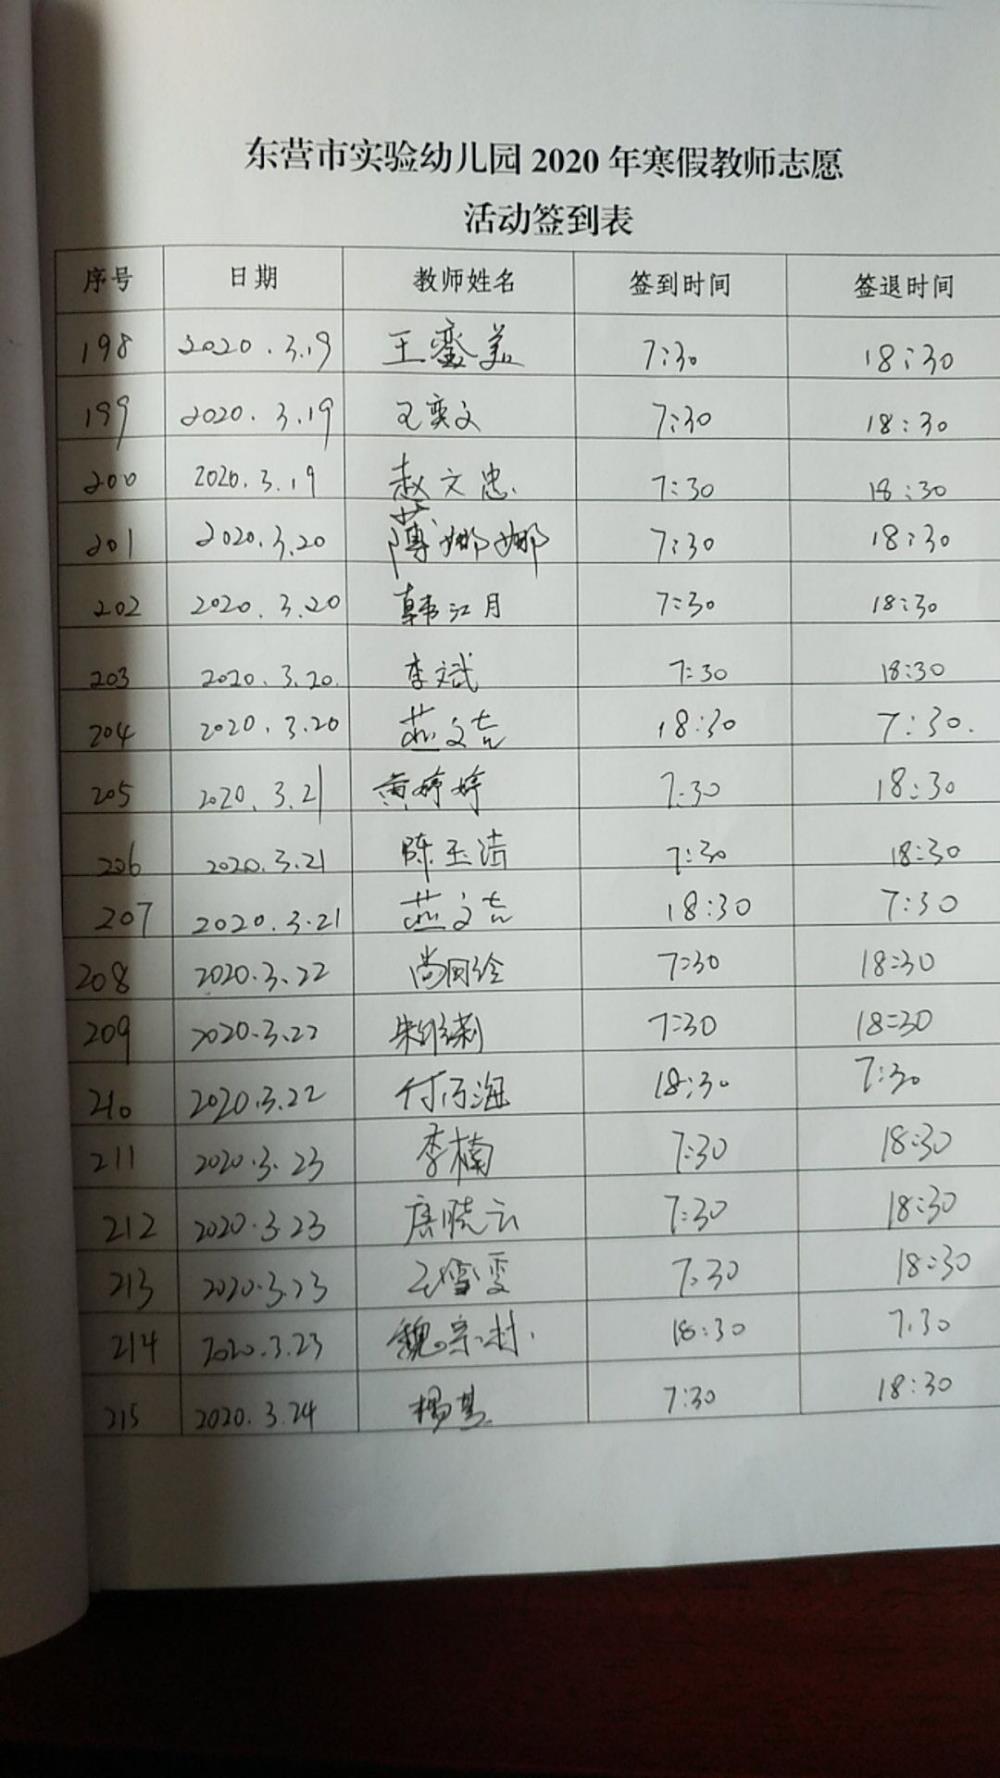 东营市实验幼儿园 2020 年寒假教师志愿
活动签到表
序号 日期 教师姓名 签到时间 签退时间
198 2020.3.19 王銮美 7:30 18:30
199 2020.3.19 王奕文 7:30 18:30
200 2020.3.19 赵文忠 7:30 18:30
201 2020.3.20 薄娜娜 7:30 18:30
202 2020.3.20 韩江月 7:30 18:30
203 2020.3.20. 李斌 7:30 18:30
204 2020.3.20 燕文吉 18:30 7:30.
205 2020.3.21 黄婷婷 7:30 18:30
206 2020.3.21 陈玉洁 7:30 18:30
207 2020.3.21 燕文吉 18:30 7:30
208 2020.3.22 7:30 18:30
209 2020.3.22 7:30 18:30
210 2020.3.22 18:30 7:30
211 2020.3.23 李楠 7:30 18:30
212 2020.3.23 唐晓云 7:30 18:30
213 2020.3.23 王雪雯 7:30 18:30
214 2020.3.23 18:30 7.30
215 2020.3.24 7:30 18:30